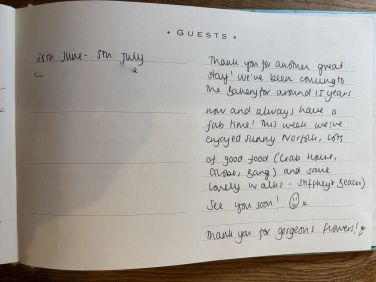 • GUESTS •
28th June - 5th July
Thank you for another great
stay! We've been coming to
the Bakery for around 15 years
now and always have a
fab time! This week we've
enjoyed sunny Norfolk, lots
of good food (Crab House,
Globe, Bang) and some
lovely walks - Stiffkey & Beach)
See you soon! ☺ x
Thank you for gorgeous flowers!